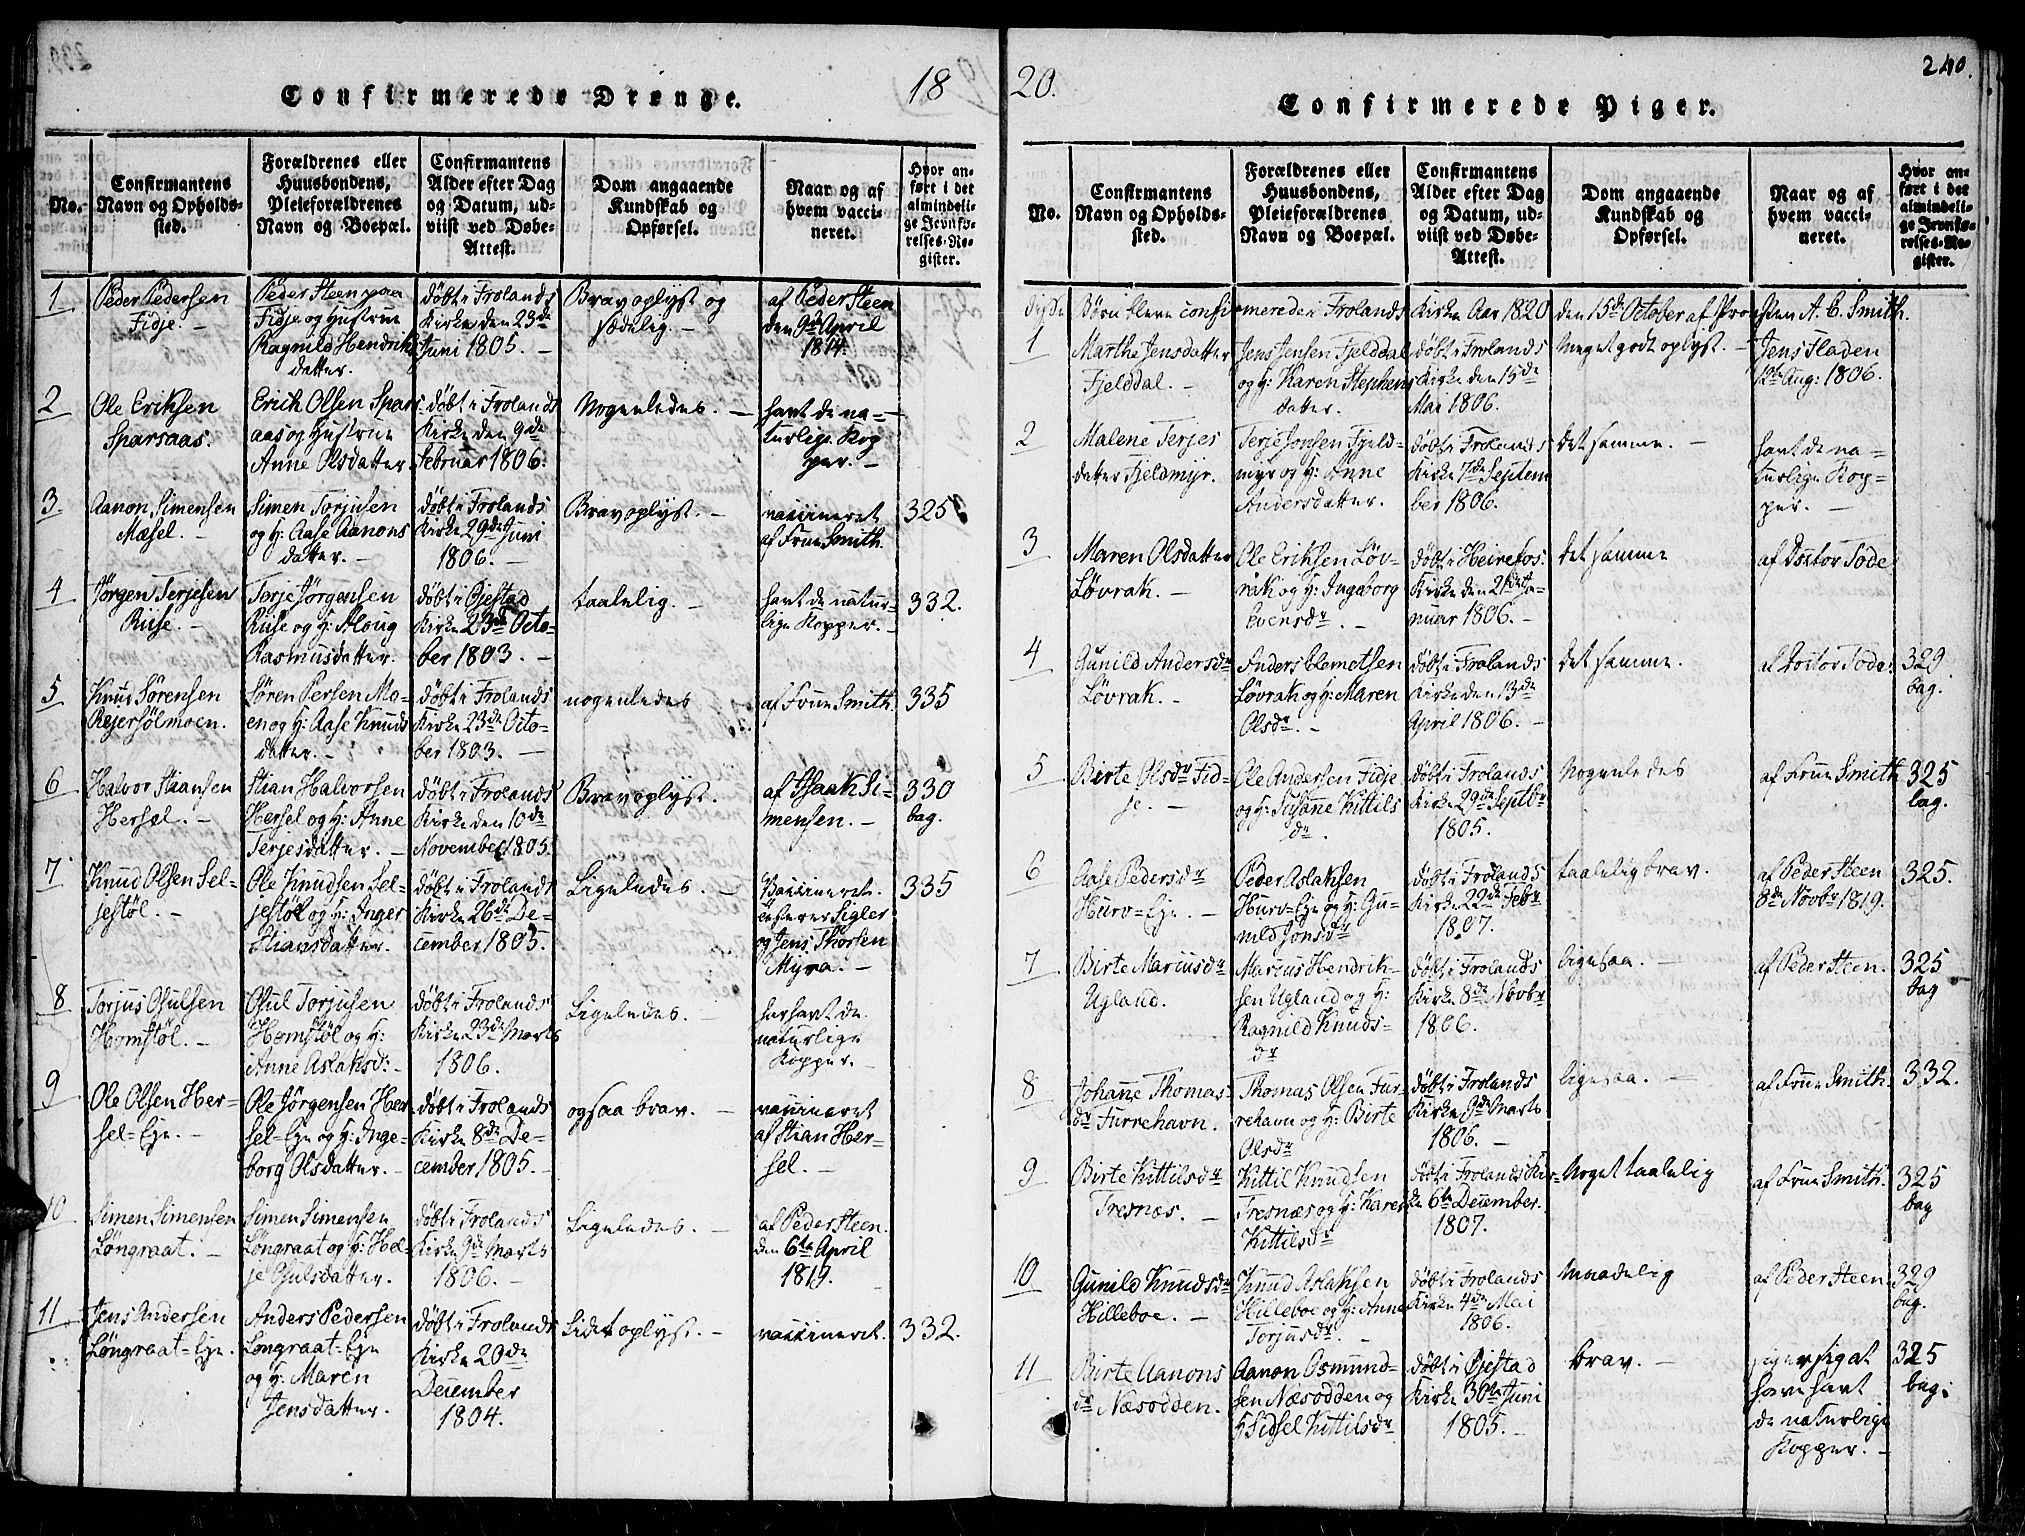 Confirmerede Drenge.
18
No.
Confirmantens
Navn og Opholds-
sted.
Forældrenes eller
Huusbondens,
Pleieforældrenes
Navn og Boepæl.
Confirmantens
Alder efter Dag
og Datum, ud-
viist ved Døbe-
Attest.
Dom angaaende
Kundskab og
Opførsel.
Naar og af
hvem vacci-
neret.
Hvor an-
ført i det
almindeli-
ge Jevnfø-
relses-Re-
gister.
1
Peder Pedersen
Fidje. -
Peder Steen paa
Fidje og Hustrue
Ragnild Hendriks
datter.
døbt i Frolands
Kirke den 23de
Juni 1805. -
Brav oplyst og
sædelig. -
af Peder Steen
den 9de April
1814.
2
Ole Eriksen
Sparsaas.
Erich Olsen Spars
aas og Hustrue
Anne Olsdatter
døbt i Frolands
Kirke den 9de
Februar 1806.
Nogenledes. -
havt de na-
turlige Kop
per. -
3.
Aanon Simensen
Mæsel. -
Simen Torjusen
og H: Aase Aanons
datter. -
døbt i Frolands
Kirke 29de Juni
1806. -
Brav oplyst. -
vaccineret
af Frue Smith.
325
4
Jørgen Terjesen
Riise. -
Terje Jørgensen
Riise og H: Aloug
Rasmusdatter.
døbt i Øjestad
Kirke 23de Octo-
ber 1803. -
taalelig. -
havt de natur-
lige Kopper. -
332.
5
Knud Sørensen
Rejersølmoen.
Søren Persen Mo-
en og H: Aase Knuds
datter. -
døbt i Frolands
Kirke 23de Octo-
ber 1803. -
nogenledes
af Frue Smith.
335
6
Halvor Stiansen
Hersel. -
Stian Halvorsen
Hersel og H: Anne
Terjesdatter. -
døbt i Frolands
Kirke den 10de
November 1805.
Brav oplyst.
af Isaak Si-
mensen. -
330
bag.
7
Knud Olsen Sel-
jestøl. -
Ole Knudsen Sel-
jestøl og H: Inger
Stiansdatter.
døbt i Frolands
Kirke 26de De-
cember 1805.
Ligeledes. -
Vaccineret
Sigler
og Jens Thorsen
Myra. -
335
8
Torjus Osulsen
Homstøl. -
Osul Torjusen
Homstøl og H:
Anne Aslaksd: -
døbt i Frolands
Kirke 23de Marts
1806.
Ligeledes. -
har havt de
naturlige
Kopper. -
9
Ole Olsen Her-
sel-Eje. -
Ole Jørgensen Her
sel-Eje og H: Inge-
borg Olsdatter. -
døbt i Frolands
Kirke 8de De-
cember 1805. -
ogsaa brav. -
vaccineret
af Stian Her-
sel. -
10
Simen Simensen
Løngraat. -
Simen Simensen
Løngraat og H: Hel-
je Osulsdatter.
døbt i Frolands
Kirke 9de Marts
1806. -
Ligeledes. -
af Peder Steen.
den 6te April
1819.
11.
Jens Andersen
Løngraat-Eje.
Anders Pedersen
Løngraat-Eje
og H: Maren
Jensdatter.
døbt i Frolands
Kirke 20de
December
1804.
Lidet oplyst. -
vaccineret.
332.
20.
240.
Confirmerede Piger.
No.
Confirmantens
Navn og Opholds-
sted.
Forældrenes eller
Huusbondens,
Pleieforældrenes
Navn og Boepæl.
Confirmantens
Alder efter Dag
og Datum, ud-
viist ved Døbe-
Attest.
Dom angaaende
Kundskab og
Opførsel.
Naar og af
hvem vacci-
neret.
Hvor an-
ført i det
almindeli-
ge Jevnfø-
relses-Re-
gister.
disse Børn bleve confirmerede i Frolands Kirke Aar 1820 den 15de October af Provsten A. C. Smith.
1
Marthe Jensdatter
Fjelddal. -
Jens Jensen Fjelddal
og H: Karen Stephens
datter.
døbt i Frolands
Kirke den 15de
Mai 1806.
Meget godt oplyst. -
Jens Fladen
12te Aug: 1806.
2
Malene Terjes
datter Fjeldmyr.
Terje Jonsen Fjeld-
myr og H: Anne
Andersdatter.
døbt i Frolands
Kirke 7de Septem
ber 1806.
det samme. -
havt de na-
turlige Kop-
per. -
3
Maren Olsdatter
Løvrak. -
Ole Eriksen Løv-
rak og H: Ingeborg
Evensdr. -
døbt i Heirefos
Kirke den 21de Ja-
nuar 1806. -
det samme
af Doctor Tode
4
Gunild Andersdr
Løvrak. -
Anders Clemetsen
Løvrak og H: Maren
Olsdr. -
døbt i Frolands
Kirke den 13de
April 1806. -
det samme.
af Doctor Tode.
329
bag.
5
Birte Olsdr Fid-
je. -
Ole Andersen Fidje
og H: Susane Kittils
dr.
døbt i Frolands
Kirke 29de Septbr
1805.
Nogenledes
af Frue Smith
325
bag.
6
Aase Pedersdr
Hurv-Eje. -
Peder Aslaksen
Hurv-Eje og H: Gu-
nild Jonsdr
døbt i Frolands
Kirke 22de Febr
1807.
taalelig brav.
af Peder Steen
8de Novbr 1819.
325.
7
Birte Mariusdr
Ugland.
Marius Hendrik-
sen Ugland og H:
Ragnild Knuds-
dr
døbt i Frolands
Kirke 8de Novbr
1806.
ligesaa. -
af Peder Steen.
325
bag
8
Johane Thomas-
dr Furrehavn.
Thomas Olsen Fur-
rehavn og H: Birte
Olsdr
døbt i Frolands
Kirke 9de Marts
1806. -
ligesaa. -
af Frue Smith.
332.
9
Birte Kittilsdr
Tresnæs. -
Kittil Knudsen
Tresnæs og H: Karen
Kittilsdr
døbt i Frolands Kir-
ke 6te December.
1807.
Noget taalelig
af Frue Smith.
325
bag
10
Gunild Knudsdr
Hilleboe. -
Knud Aslaksen
Hilleboe og H: Anne
Torjusdr. -
døbt i Frolands
Kirke 4de Mai
1806.
Maadelig
af Peder Steen.
329
bag.
11
Birte Aanons
dr Næsodden.
Aanon Osmund-
sen Næsodden og
H Sidsel Kittilsdr
døbt i Øjestad
Kirke 30te Juni
1805. -
brav. -
siger sig at
have havt
de naturlige
Kopper. -
325
bag.